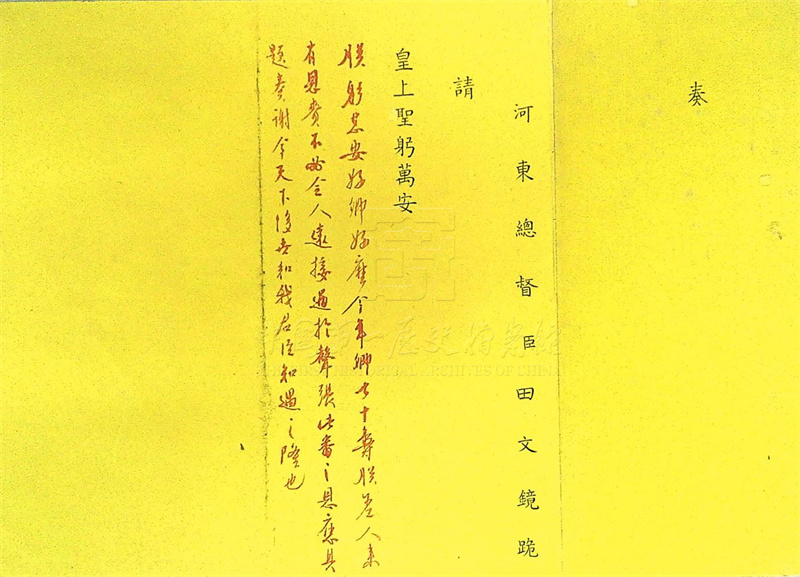 奏
河東總督臣田文鏡跪
請
皇上聖躬萬安
朕躬甚安好卿好麽今年卿七十壽朕差人來
有恩賚不必令人遠接過於聲張此番之恩應具
題奏謝令天下後世知我君臣知遇之隆也
中国第一历史档案馆
HISTORICAL ARCHIVES OF CHINA